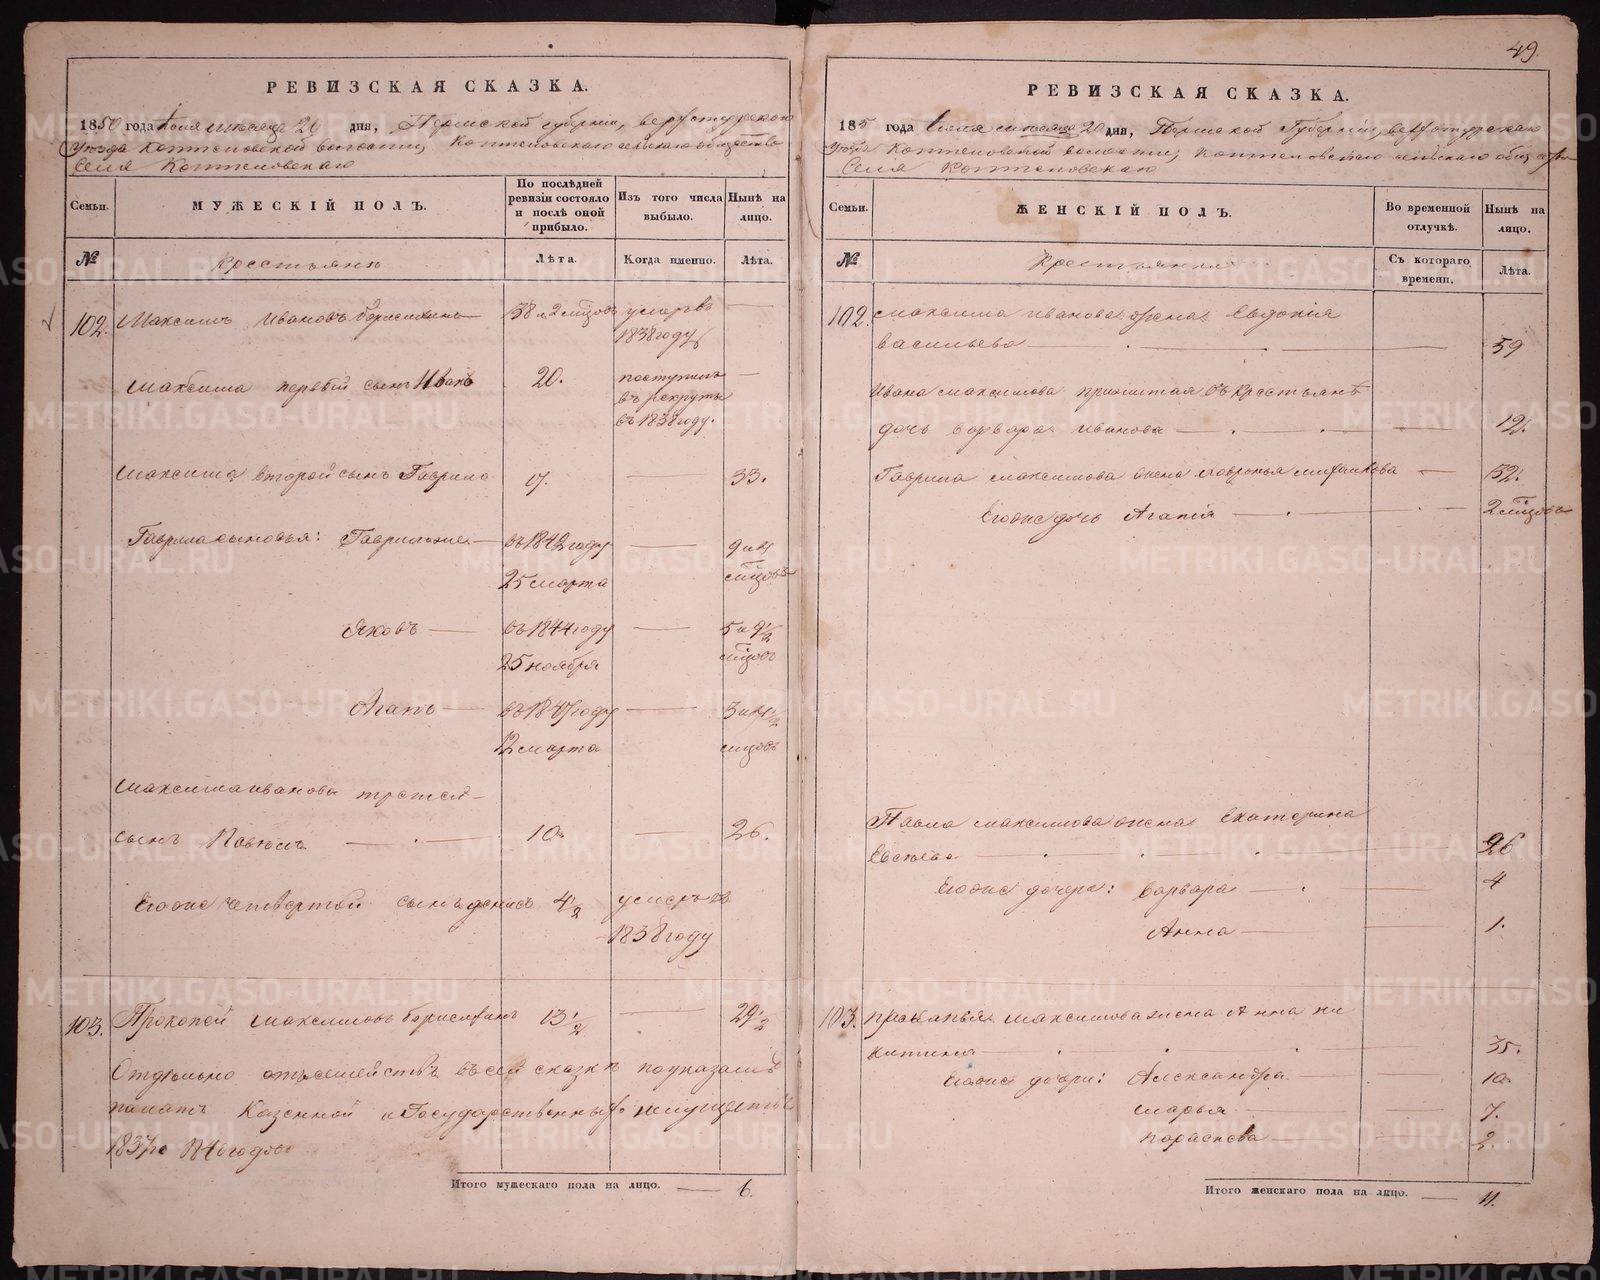 49.
РЕВИЗСКАЯ СКАЗКА.
1850 года Іюля месяца 20 дня, Пермской губерніи, верхотурскаго
уезда Коптеловской волости, Коптеловскаго сельскаго общества
Села Коптеловскаго
Семьи.
МУЖЕСКІЙ ПОЛЪ.
По послѣдней ревизіи состояло и послѣ оной прибыло.
Изъ того числа выбыло.
Нынѣ на лицо.
№
Крестьяне
Лѣта.
Когда именно.
Лѣта.
102. Максимъ Ивановъ Борисихинъ 58 и 2 умеръ въ
1838 году
Максима первый сынъ Иванъ 20. поступилъ
въ рекруты
въ 1838 году.
Максима второй сынъ Гаврило 17. 33.
Гаврила сыновья: въ 1842 году
25 марта
Яковъ въ 1844 году
25 ноября
въ 1847 году
12 марта
Максима иванова третей
сынъ Павелъ 10 26.
Егоже четвертой сынъ денисъ 4 1/2 умеръ въ
1838 году
103. Прокопей Максимовъ 13 1/2 29 1/2
Отдельно отъ семействъ въ сей сказке по указамъ
палатъ Казенной и Государственныхъ имуществъ
1837 годовъ
Итого мужескаго пола на лицо. 6.
РЕВИЗСКАЯ СКАЗКА.
185 года Іюля месяца 20 дня, Пермской Губерніи, верхотурскаго
уезда Коптеловской волости, Коптеловскаго сельскаго общества
Села Коптеловскаго
Семьи.
ЖЕНСКІЙ ПОЛЪ.
Во временной отлучкѣ.
Нынѣ на лицо.
№
Крестьянки
Съ котораго времени.
Лѣта.
102. Максима иванова жена Евдокія
васильева 59
Ивана максимова прижитая въ крестьянѣ
дочь варвара иванова 12.
Гаврила максимова жена 32.
Егоже дочь Агапія
Павла максимова жена Екатерина
26
Егоже дочери: варвара 4
Анна 1.
103. Прокопья максимова жена Анна ни
китина 35.
Егоже дочери: Александра 10.
марья 7.
парасковья 2.
Итого женскаго пола на лицо. 11.
METRIKI.GASO-URAL.RU